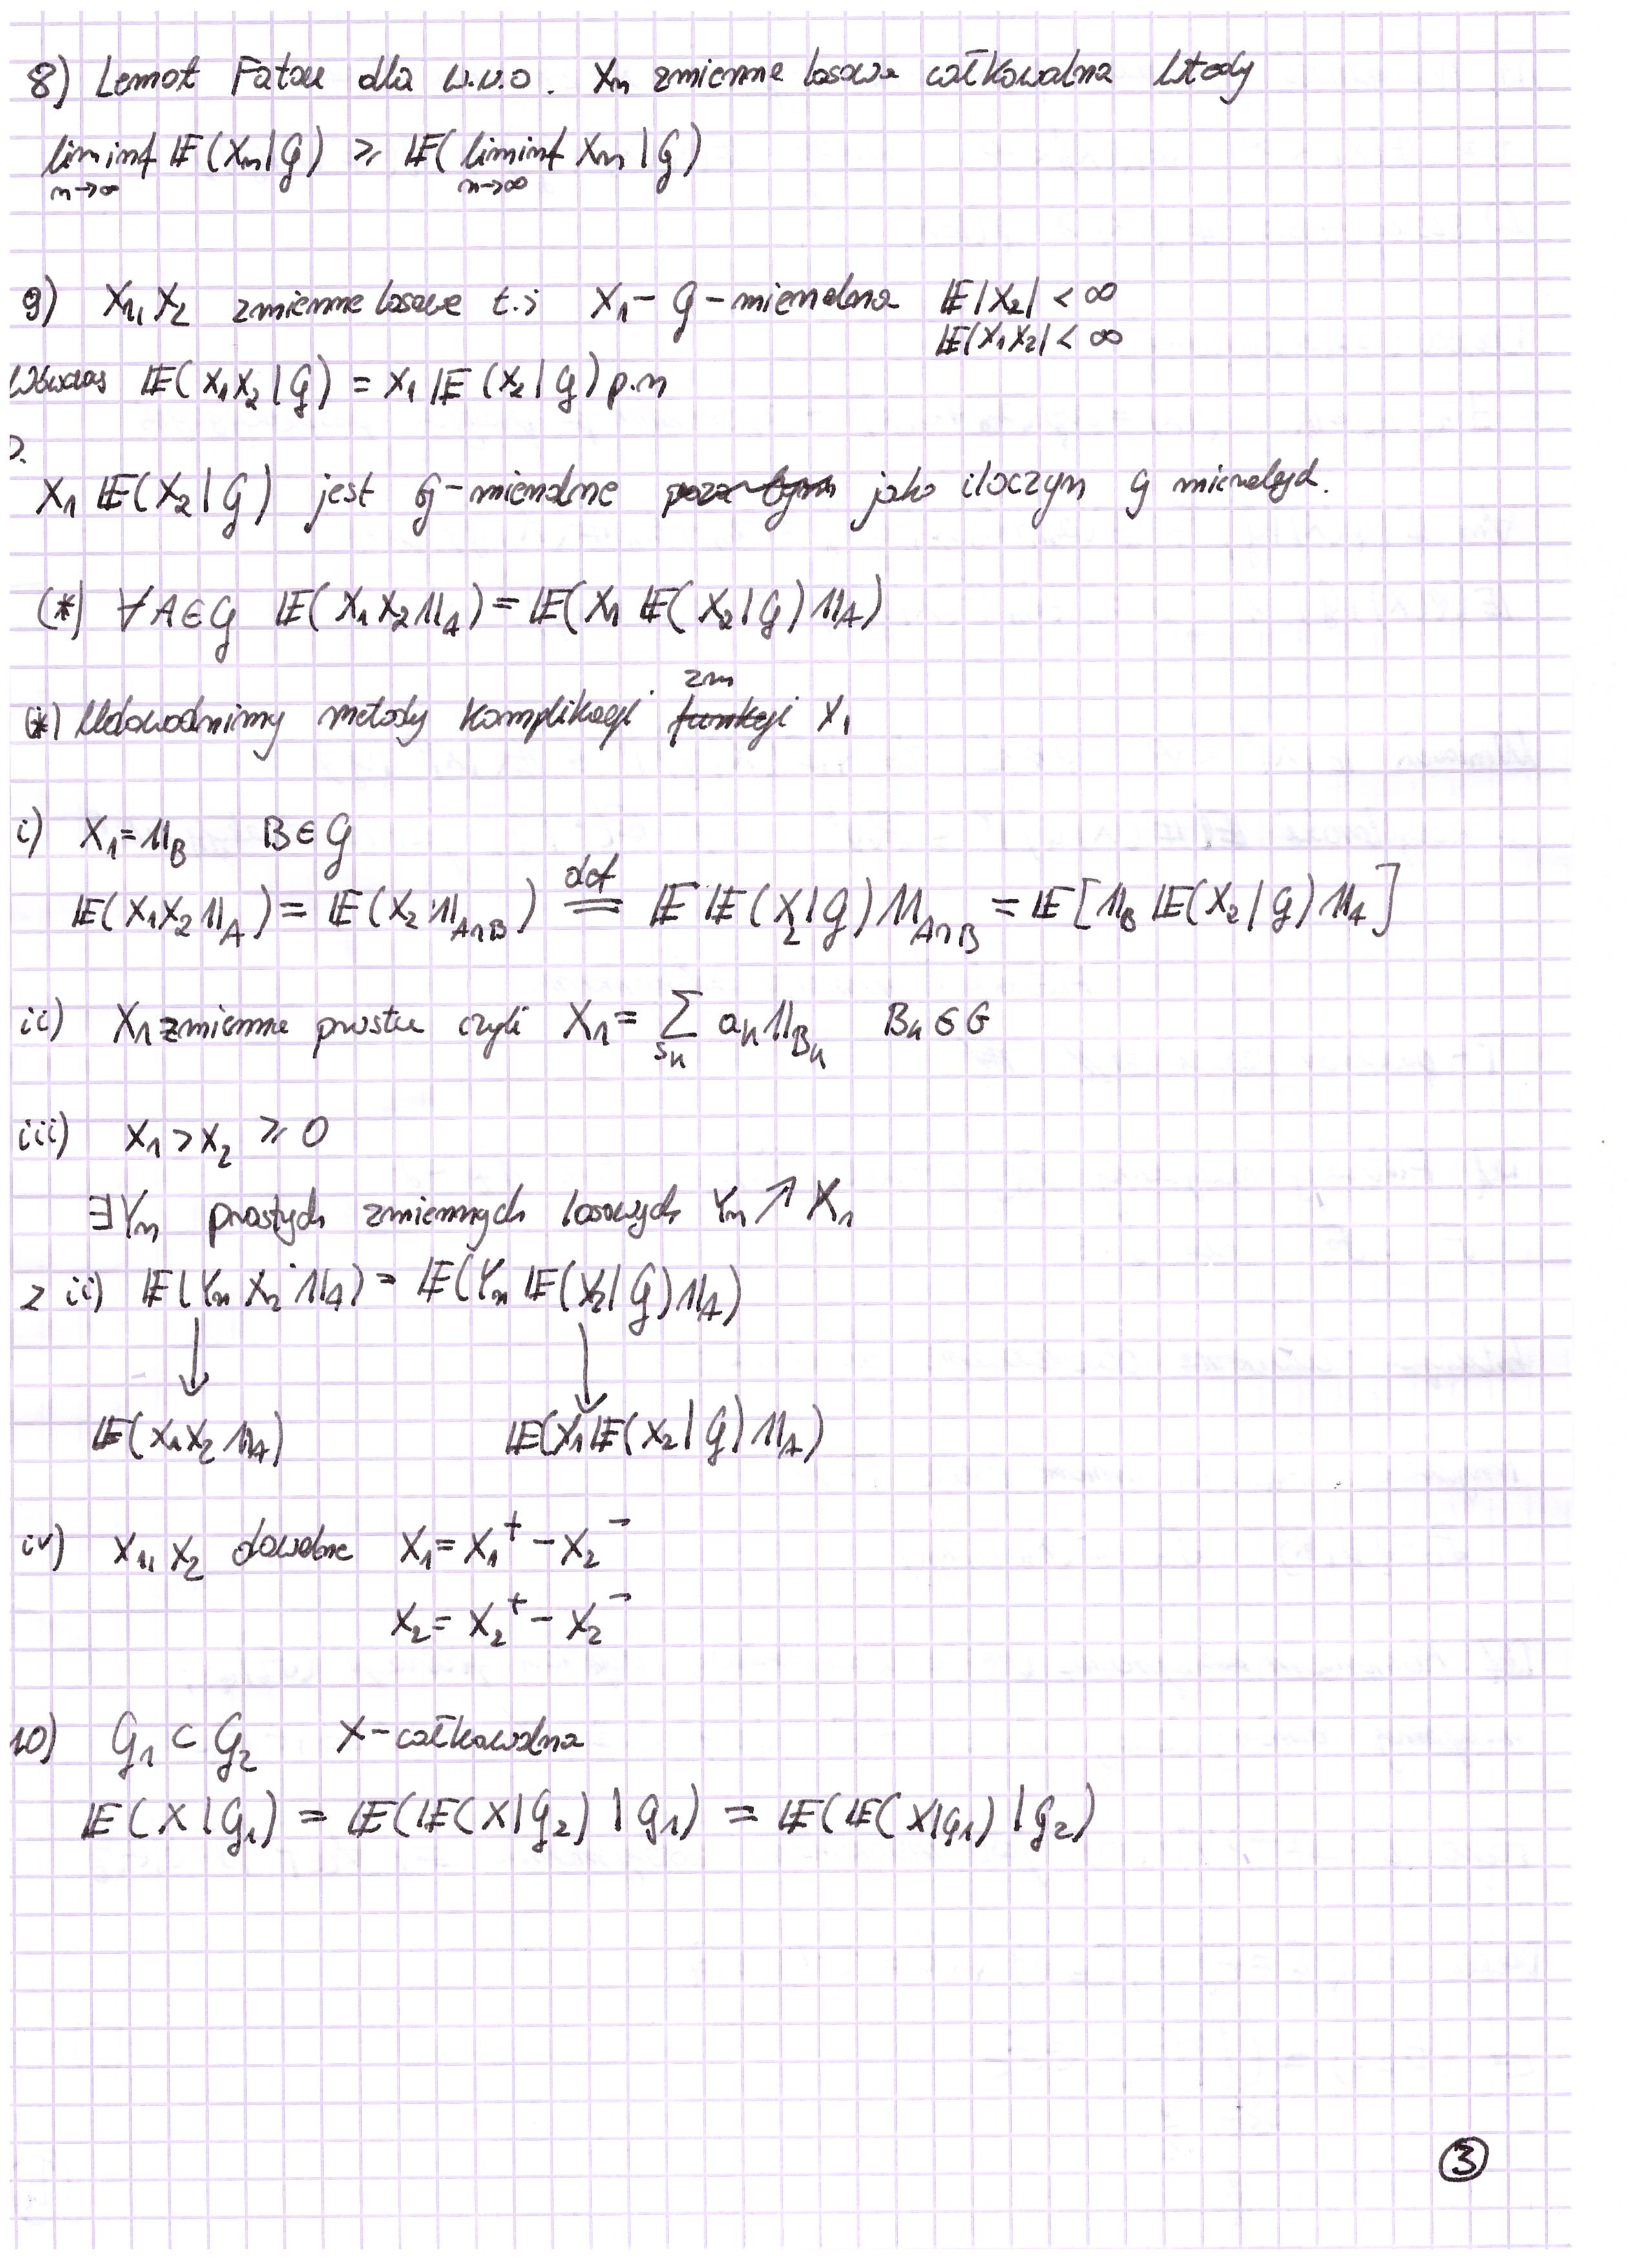 8) Lemat Fatou dla w.w.o. Xn zmienne losowe całkowalne Wtedy
liminf 𝔼(Xn|G) ≥ 𝔼(liminf Xn|G)
n→∞ n→∞
9) X1, X2 zmienne losowe t.ż X1 - G - mierzalna 𝔼|X2| < ∞
𝔼|X1X2| < ∞
Wówczas 𝔼(X1X2|G) = X1 𝔼(X2|G) p.n
D.
X1 𝔼(X2|G) jest G-mierzalne poza tym jako iloczyn G mierzalnych.
(*) ∀A∈G 𝔼(X1X2 𝟙A) = 𝔼(X1 𝔼(X2|G) 𝟙A)
zm
(*) Udowodnimy metody komplikacji funkcji X1
i) X1 = 𝟙B B∈G
𝔼(X1X2 𝟙A) = 𝔼(X2·𝟙A∩B) =def= 𝔼 𝔼(X2|G) 𝟙A∩B = 𝔼[𝟙B 𝔼(X2|G) 𝟙A]
ii) X1 zmienne proste czyli X1 = ∑sk ak 𝟙Bk Bk∈G
iii) X1 > X2 ≥ 0
∃Yn prostych zmiennych losowych Yn ↗ X1
z ii) 𝔼(Yn X2·𝟙A) = 𝔼(Yn 𝔼(X2|G) 𝟙A)
↓ ↓
𝔼(X1X2 𝟙A) 𝔼(X1 𝔼(X2|G) 𝟙A)
iv) X1, X2 dowolne X1 = X1⁺ - X2⁻
X2 = X2⁺ - X2⁻
10) G1 ⊂ G2 X - całkowalna
𝔼(X|G1) = 𝔼(𝔼(X|G2)|G1) = 𝔼(𝔼(X|G1)|G2)
3